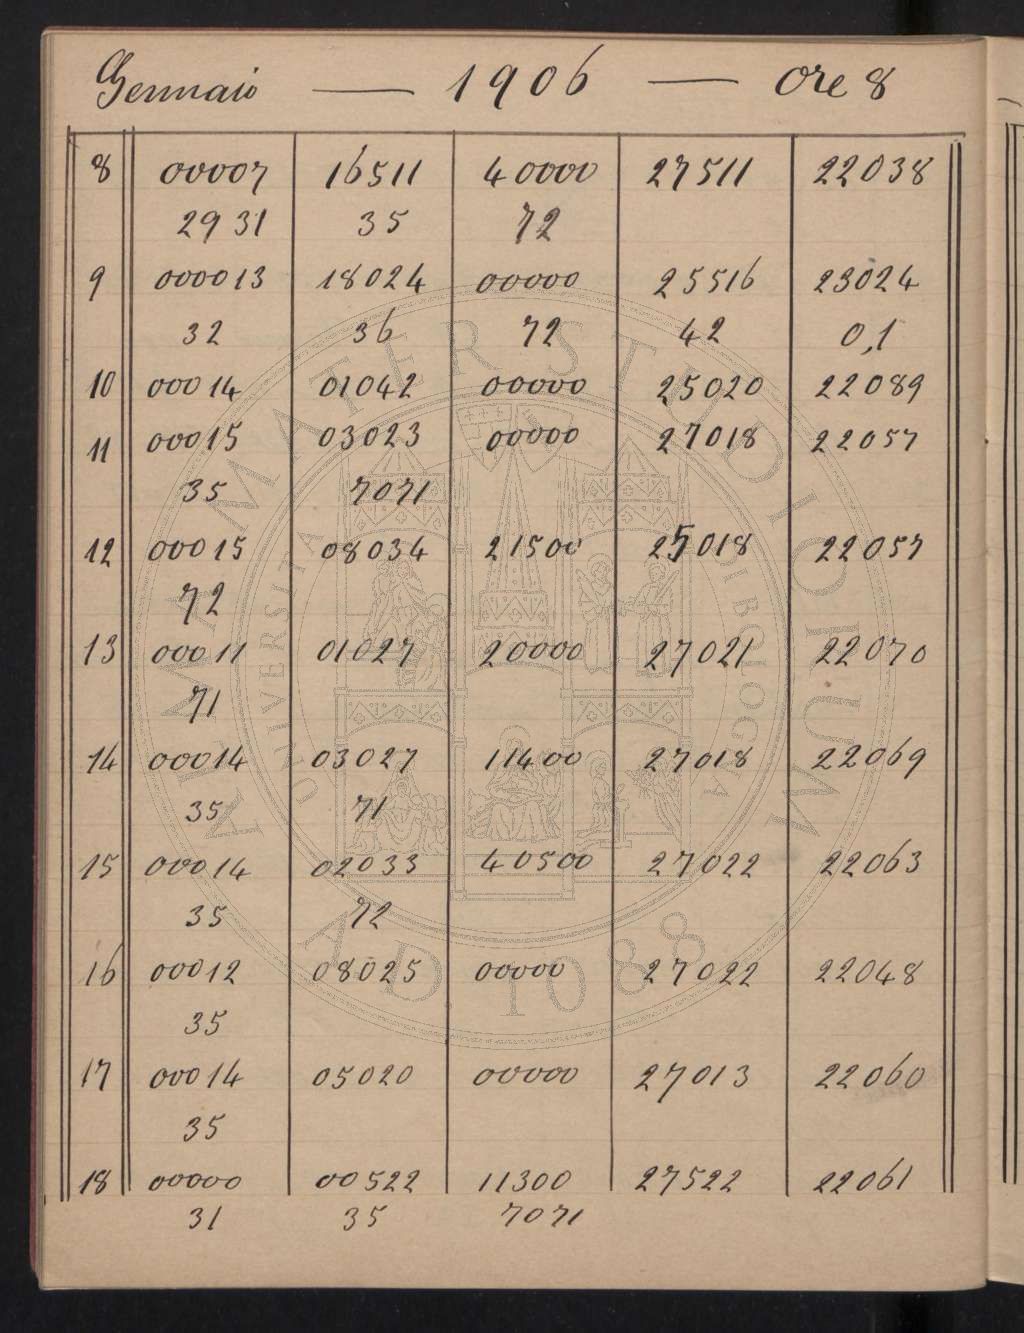 Gennaio — 1906 — Ore 8
8 00007 16511 40000 27511 22038
29 31 35 72
9 000013 18024 00000 25516 23024
32 36 72 42 0,1
10 00014 01042 00000 25020 22089
11 00015 03023 00000 27018 22057
35 7071
12 00015 08034 21500 25018 22057
72
13 00011 01027 20000 27021 22070
71
14 00014 03027 11400 27018 22069
35 71
15 00014 02033 40500 27022 22063
35 72
16 00012 08025 00000 27022 22048
35
17 00014 05020 00000 27013 22060
35
18 00000 00522 11300 27522 22061
31 35 7071
ALMA MATER STUDIORUM
UNIVERSITÀ DI BOLOGNA
A.D. 1088